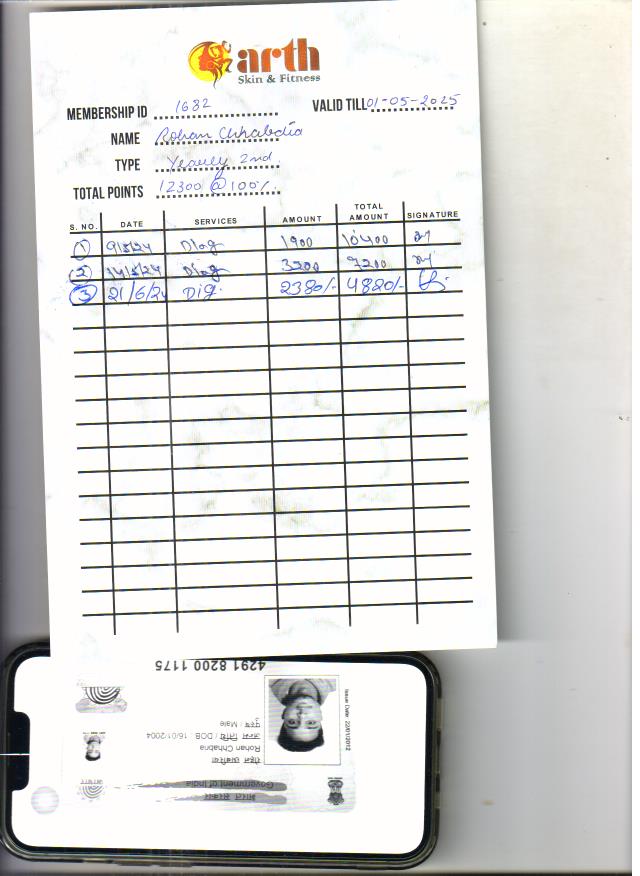 arth
Skin & Fitness
MEMBERSHIP ID 1682 VALID TILL 01-05-2025
NAME Rohan Chhabdia
TYPE Yearly 2nd.
TOTAL POINTS 12300 @ 100%.
S. NO. DATE SERVICES AMOUNT TOTAL AMOUNT SIGNATURE
1 9/5/24 1900 10400
2 14/5/24 3200 7200
3 21/6/24 Dig. 2380/- 4820/-
4291 8200 1175
Issue Date: 22/01/2012
पुरुष / Male
जन्म तिथि / DOB : 16/01/2004
Rohan Chhabria
रोहन
Government of India
भारत सरकार